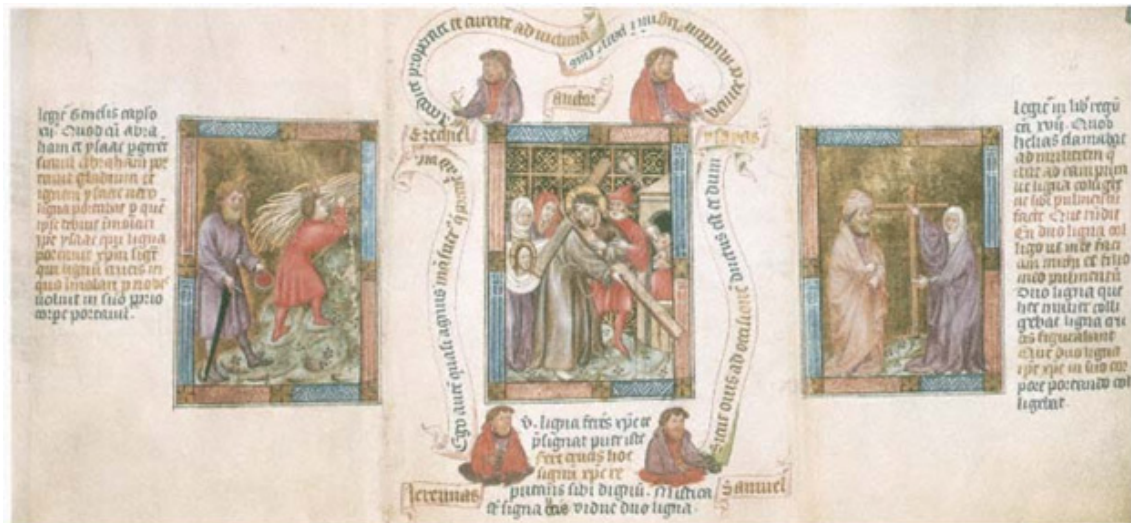 legit̄ Genesis caplo
Quod cū abra
ham et ysaac pgeret
simul abraham por
tauit gladium et
ignem ysaac uero
ligna portabat p que
ipse debuit īmolari
ysaac qui ligna
portauit xpm
qui lignū crucis in
quo īmolari p
uoluit in suo pprio
corpe portauit.
properate et currite ad uictimā
uenite
auctor
Ezechiel
ysayas
Ego autē quasi agnus māsuet' q portat̄
Sicut ouis ad occisionē ductus est et dum
ligna ferēs xpe te
psignat puer iste
hoc
signū xpe
sibi dignū. Mistica
ligna cruc' uidue duo ligna.
Jeremias
Samuel
legit̄ in lib' regū
Quod
helias clamabat
ad mulierem q
ibat ad campum
ut ligna colliget
et sibi pulmentū
facēt Que rūdit
En duo ligna col
ligo ut inde faci
am michi et filio
meo pulmentū
Duo ligna que
hec mulier colli
gebat ligna cru
cis figurabant
Que duo ligna
xpc in suo cor
pore portando col
ligebat.